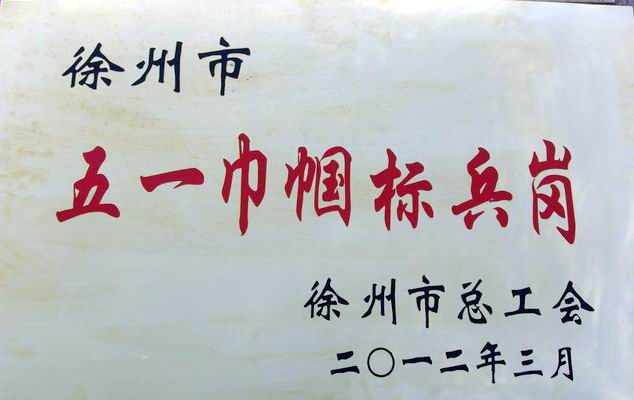 徐州市
五一巾帼标兵岗
徐州市总工会
二〇一二年三月